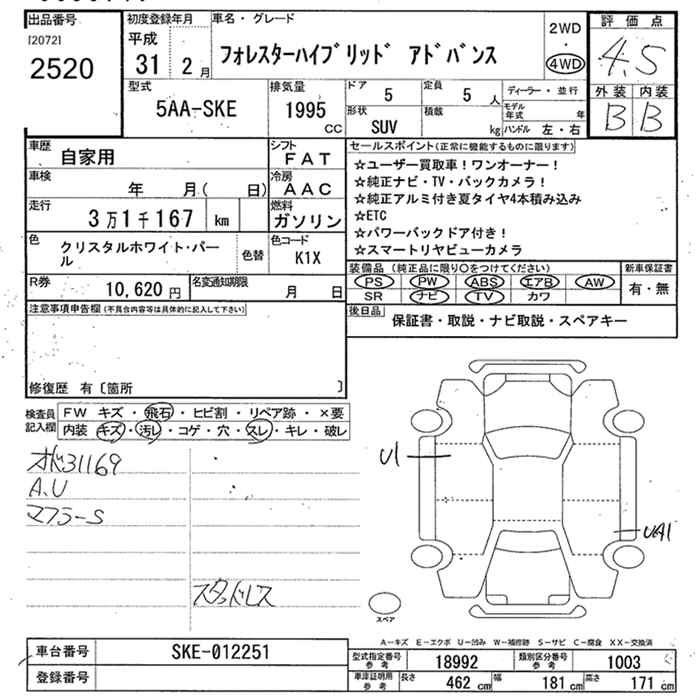 出品番号
I20721
2520
初度登録年月
平成
31 2月
車名・グレード
フォレスターハイブリッド アドバンス
2WD
・
4WD
評価点
4.5
外装 内装
B B
型式
5AA-SKE
排気量
1995
CC
ドア
5
定員
5 人
形状
SUV
積載
kg
ディーラー・並行
モデル年式 年
ハンドル 左・右
車歴
自家用
シフト
FAT
車検
年 月( 日)
冷房
AAC
走行
3万1千167 km
燃料
ガソリン
色
クリスタルホワイト・パール
色替
色コード
K1X
R券
10,620 円
名変通知期限
月 日
セールスポイント(正常に機能するものに限ります)
☆ユーザー買取車!ワンオーナー!
☆純正ナビ・TV・バックカメラ!
☆純正アルミ付き夏タイヤ4本積み込み
☆ETC
☆パワーバックドア付き!
☆スマートリヤビューカメラ
装備品(純正品に限り○をつけてください)
新車保証書
PS PW ABS エアB AW
SR ナビ TV カワ
有・無
後日品
保証書・取説・ナビ取説・スペアキー
注意事項申告欄(不具合内容等は具体的に記入して下さい)
修復歴 有〔箇所 〕
検査員記入欄
FW キズ・飛石・ヒビ割・リペア跡・×要
内装 キズ・汚レ・コゲ・穴・スレ・キレ・破レ
31169
A.U
マフラーS
スタッドレス
U1
UA1
スペア
A-キズ E-エクボ U-凹み W-補修跡 S-サビ C-腐食 XX-交換済
車台番号
SKE-012251
登録番号
型式指定番号参考
18992
類別区分番号参考
1003
車庫証明用参考
長さ 462 cm 幅 181 cm 高さ 171 cm